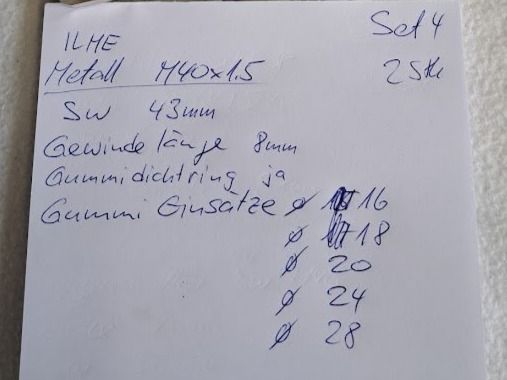 ILME
Set 4
Metall M40x1.5
2 Stk
SW 43mm
Gewindelänge 8mm
Gummidichtring ja
Gummi Einsätze ø 16
ø 18
ø 20
ø 24
ø 28